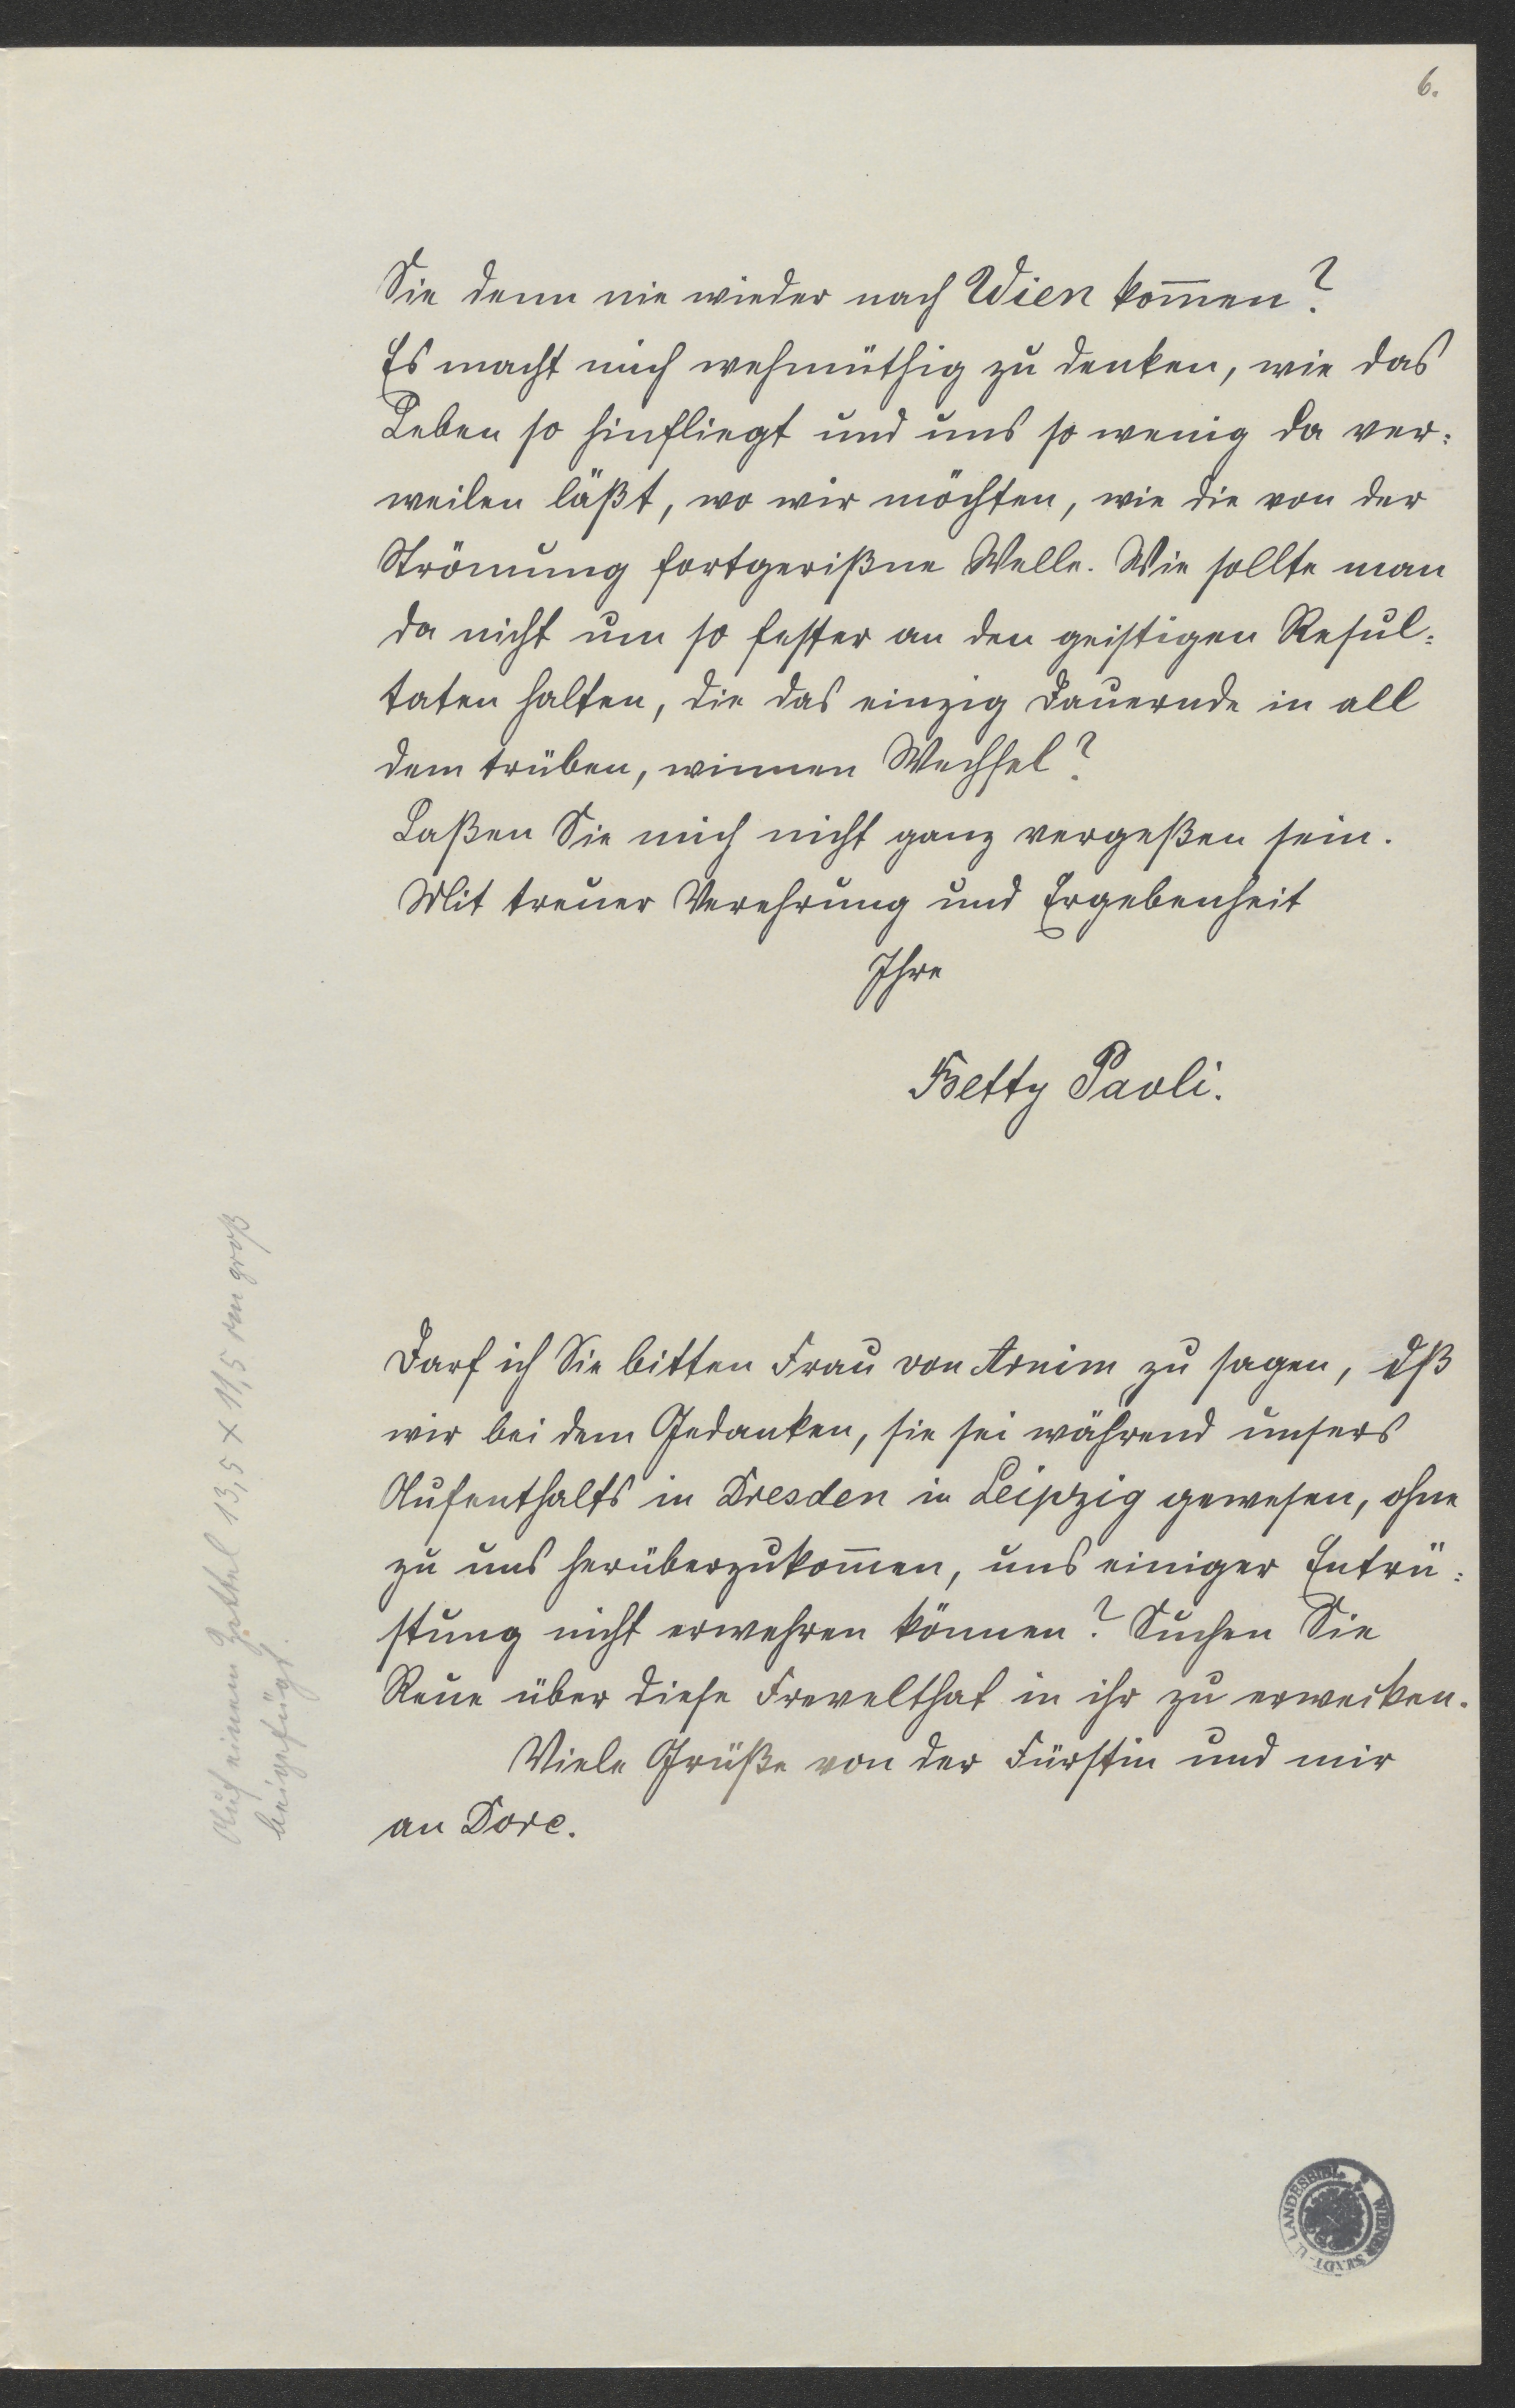 6.
Sie denn nie wieder nach Wien kom̄en?
Es macht mich wehmüthig zu denken, wie das
Leben so hinfliegt und uns so wenig da ver:
weilen läßt, wo wir möchten, wie die von der
Strömung fortgerißne Welle. Wie sollte man
da nicht um so fester an den geistigen Resul:
taten halten, die das einzig Dauernde in all
dem trüben, Wechsel?
Laßen Sie mich nicht ganz vergeßen sein.
Mit treuer Verehrung und Ergebenheit
Ihre
Betty Paoli.
Darf ich Sie bitten Frau von Arnim zu sagen, dß
wir bei dem Gedanken, sie sei während unsers
Aufenthalts in Dresden in Leipzig gewesen, ohne
zu uns herüberzukom̄en, uns einiger Entrü:
stung nicht erwehren können? Suchen Sie
Reue über diese Frevelthat in ihr zu erwecken.
Viele Grüße von der Fürstin und mir
an Dore.
Auf einem Zettel 13,5 x 11,5 cm groß
beigefügt.
WIENER STADT- U. LANDESBIBL.